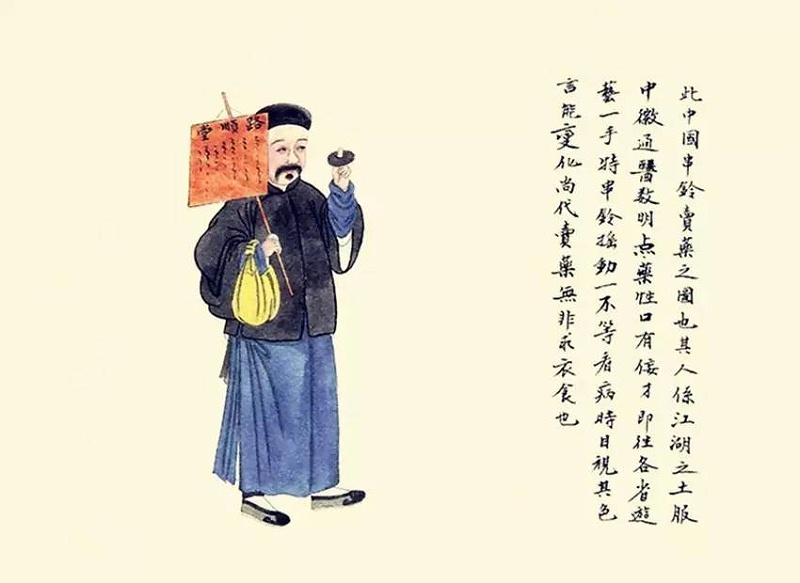 此中國串鈴賣藥之圖也其人係江湖之士服
中微通醫数明点藥性口有佞才即往各省遊
藝一手持串鈴搖動一不等看病時目視其色
言能變化尚代賣藥無非求衣食也
路順堂